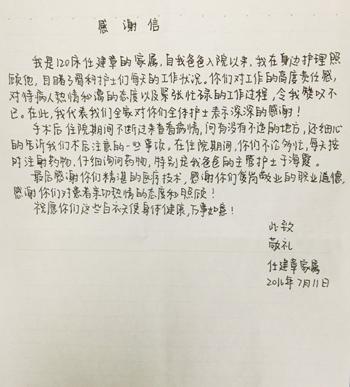 感谢信
我是120床任建章的家属，自我爸爸入院以来，我在身边护理照
顾他，目睹了骨科护士们每天的工作状况。你们对工作的高度责任感，
对待病人热情和蔼的态度以及紧张忙碌的工作过程，令我赞叹不
已。在此，我代表我们全家对你们全体护士表示深深的感谢！
手术后住院期间不断过来查看病情，问有没有不适的地方，还细心
的告诉我们术后注意的一些事项。在住院期间，你们不论多忙，每天按
时注射药物，仔细询问药物，特别是我爸爸的主管护士于海霞。
最后感谢你们精湛的医疗技术，感谢你们爱岗敬业的职业道德，
感谢你们对患者亲切热情的态度和照顾！
祝愿你们这些白衣天使身体健康，万事如意！
此致
敬礼
任建章家属
2016年7月11日